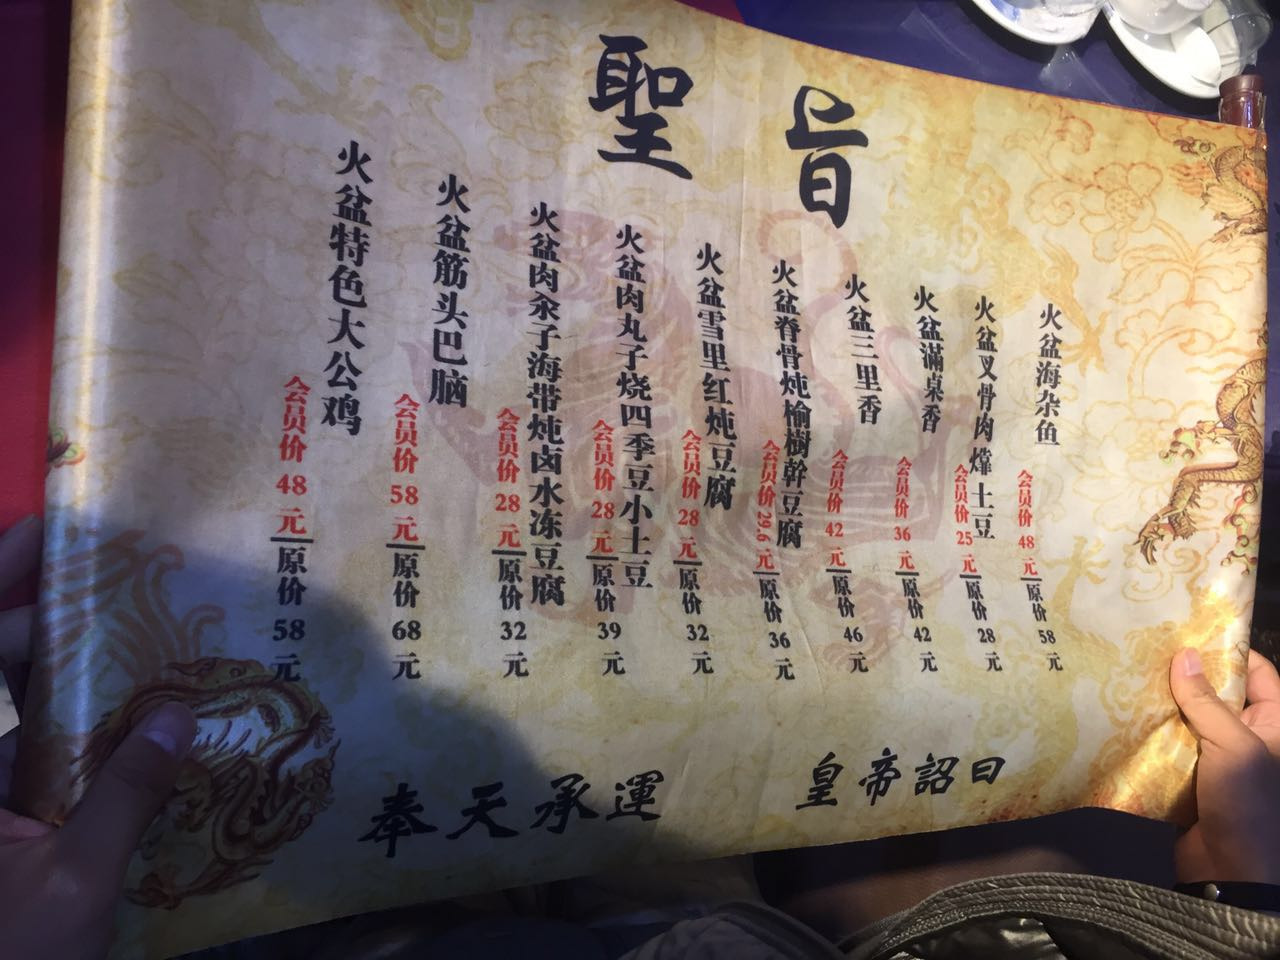 聖旨
火盆特色大公鸡
会员价 48 元 原价 58 元
火盆筋头巴脑
会员价 58 元 原价 68 元
火盆肉汆子海带炖卤水冻豆腐
会员价 28 元 原价 32 元
火盆肉丸子烧四季豆小土豆
会员价 28 元 原价 39 元
火盆雪里红炖豆腐
会员价 28 元 原价 32 元
火盆脊骨炖榆樹幹豆腐
会员价 29.6 元 原价 36 元
火盆三里香
会员价 42 元 原价 46 元
火盆滿桌香
会员价 36 元 原价 42 元
火盆叉骨肉㸆土豆
会员价 25 元 原价 28 元
火盆海杂鱼
会员价 48 元 原价 58 元
奉天承運
皇帝詔曰